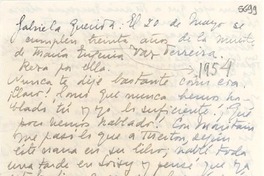 5699
Gabriela Querida: El 20 de Mayo se
cumplen treinta años de la muerte
de María Eugenia Vaz Ferreira.
Reza por ella. 1954
Nunca te dije bastante como era.
Claro! Como que nunca hemos ha-
blado tú y yo lo suficiente! Qué
poco hemos hablado! Con
que pasó lo que a Theotos
en su libro; habló toda
una tarde en y pensé que